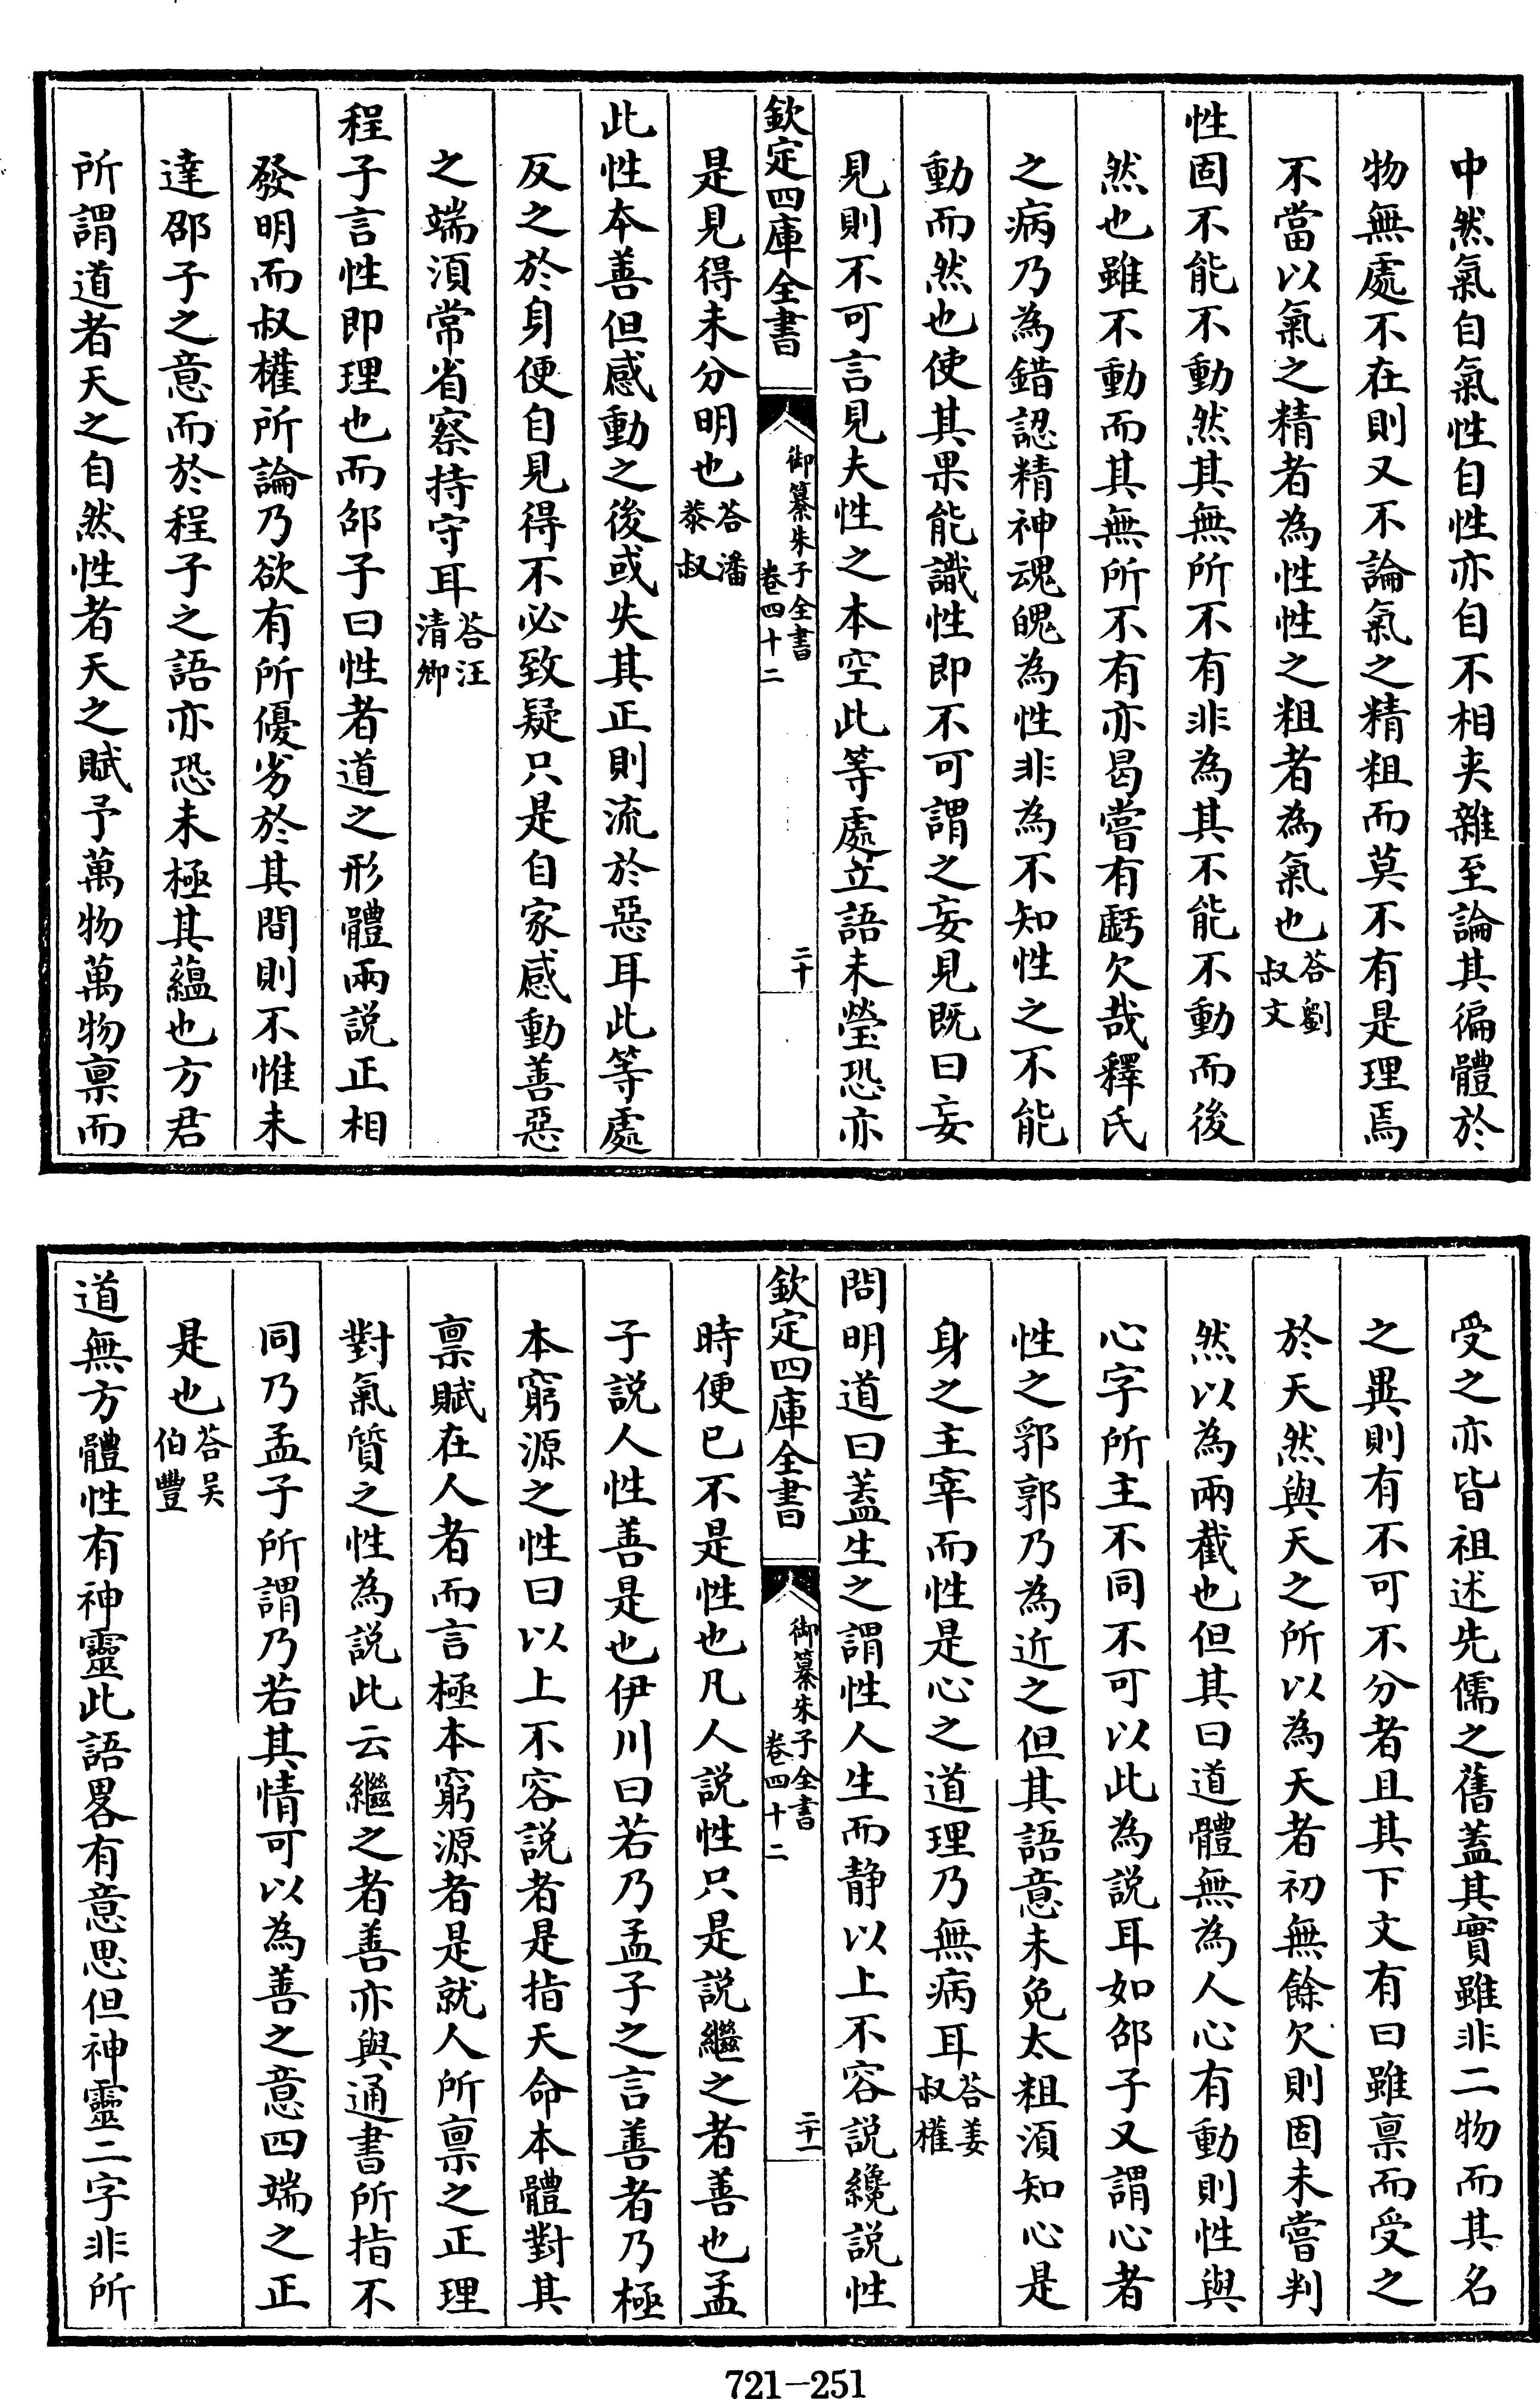 中然氣自氣性自性亦自不相夾雜至論其徧體於
物無處不在則又不論氣之精粗而莫不有是理焉
不當以氣之精者為性性之粗者為氣也答劉叔文
性固不能不動然其無所不有非為其不能不動而後
然也雖不動而其無所不有亦曷嘗有虧欠哉釋氏
之病乃為錯認精神魂魄為性非為不知性之不能
動而然也使其果能識性即不可謂之妄見既曰妄
見則不可言見夫性之本空此等處立語未瑩恐亦
欽定四庫全書
御纂朱子全書
卷四十二
二十
是見得未分明也答潘恭叔
此性本善但感動之後或失其正則流於惡耳此等處
反之於身便自見得不必致疑只是自家感動善惡
之端須常省察持守耳答汪清卿
程子言性即理也而邵子曰性者道之形體兩說正相
發明而叔權所論乃欲有所優劣於其間則不惟未
達邵子之意而於程子之語亦恐未極其蘊也方君
所謂道者天之自然性者天之賦予萬物萬物稟而
受之亦皆祖述先儒之舊蓋其實雖非二物而其名
之異則有不可不分者且其下文有曰雖稟而受之
於天然與天之所以為天者初無餘欠則固未嘗判
然以為兩截也但其曰道體無為人心有動則性與
心字所主不同不可以此為說耳如邵子又謂心者
性之郛郭乃為近之但其語意未免太粗須知心是
身之主宰而性是心之道理乃無病耳答姜叔權
問明道曰蓋生之謂性人生而静以上不容說纔說性
欽定四庫全書
御纂朱子全書
卷四十二
二十一
時便已不是性也凡人說性只是說繼之者善也孟
子說人性善是也伊川曰若乃孟子之言善者乃極
本窮源之性曰以上不容說者是指天命本體對其
稟賦在人者而言極本窮源者是就人所稟之正理
對氣質之性為說此云繼之者善亦與通書所指不
同乃孟子所謂乃若其情可以為善之意四端之正
是也答吳伯豐
道無方體性有神靈此語畧有意思但神靈二字非所
721-251